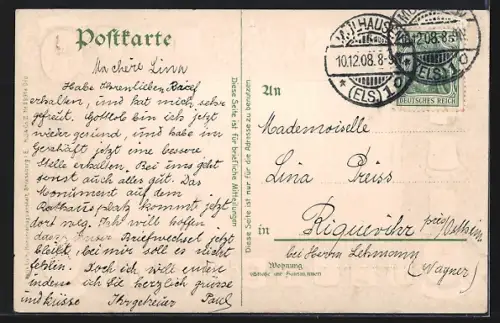 Postkarte
Ma chère Lina
Habe Ihren lieben Brief
erhalten, und hat mich sehr
gefreut. Gottlob bin ich jetzt
wieder gesund, und habe im
Geschäft jetzt eine bessere
Stelle erhalten. Bei uns geht
sonst auch alles gut. Das
Monument auf dem
Rathausplatz kommt jetzt
dort weg. Ich will hoffen
dass unser Briefwechsel jetzt
bleibt, bei mir soll es nicht
fehlen. Doch ich will
indem ich Sie herzlich grüsse
und küsse Ihr getreuer Paul
Diese Seite ist für briefliche Mitteilungen
Diese Seite ist nur für die Adresse zu benutzen
MÜLHAUSEN
10.12.08. 8-9
(ELS.) 1 d
10.12.08. 8-9
(ELS) 1 d
DEUTSCHES REICH
An
Mademoiselle
Lina Preiss
in Riquewihr près Ostheim
bei Herrn Lehmann
(Wagner)
Wohnung
(Straße und Hausnummer)